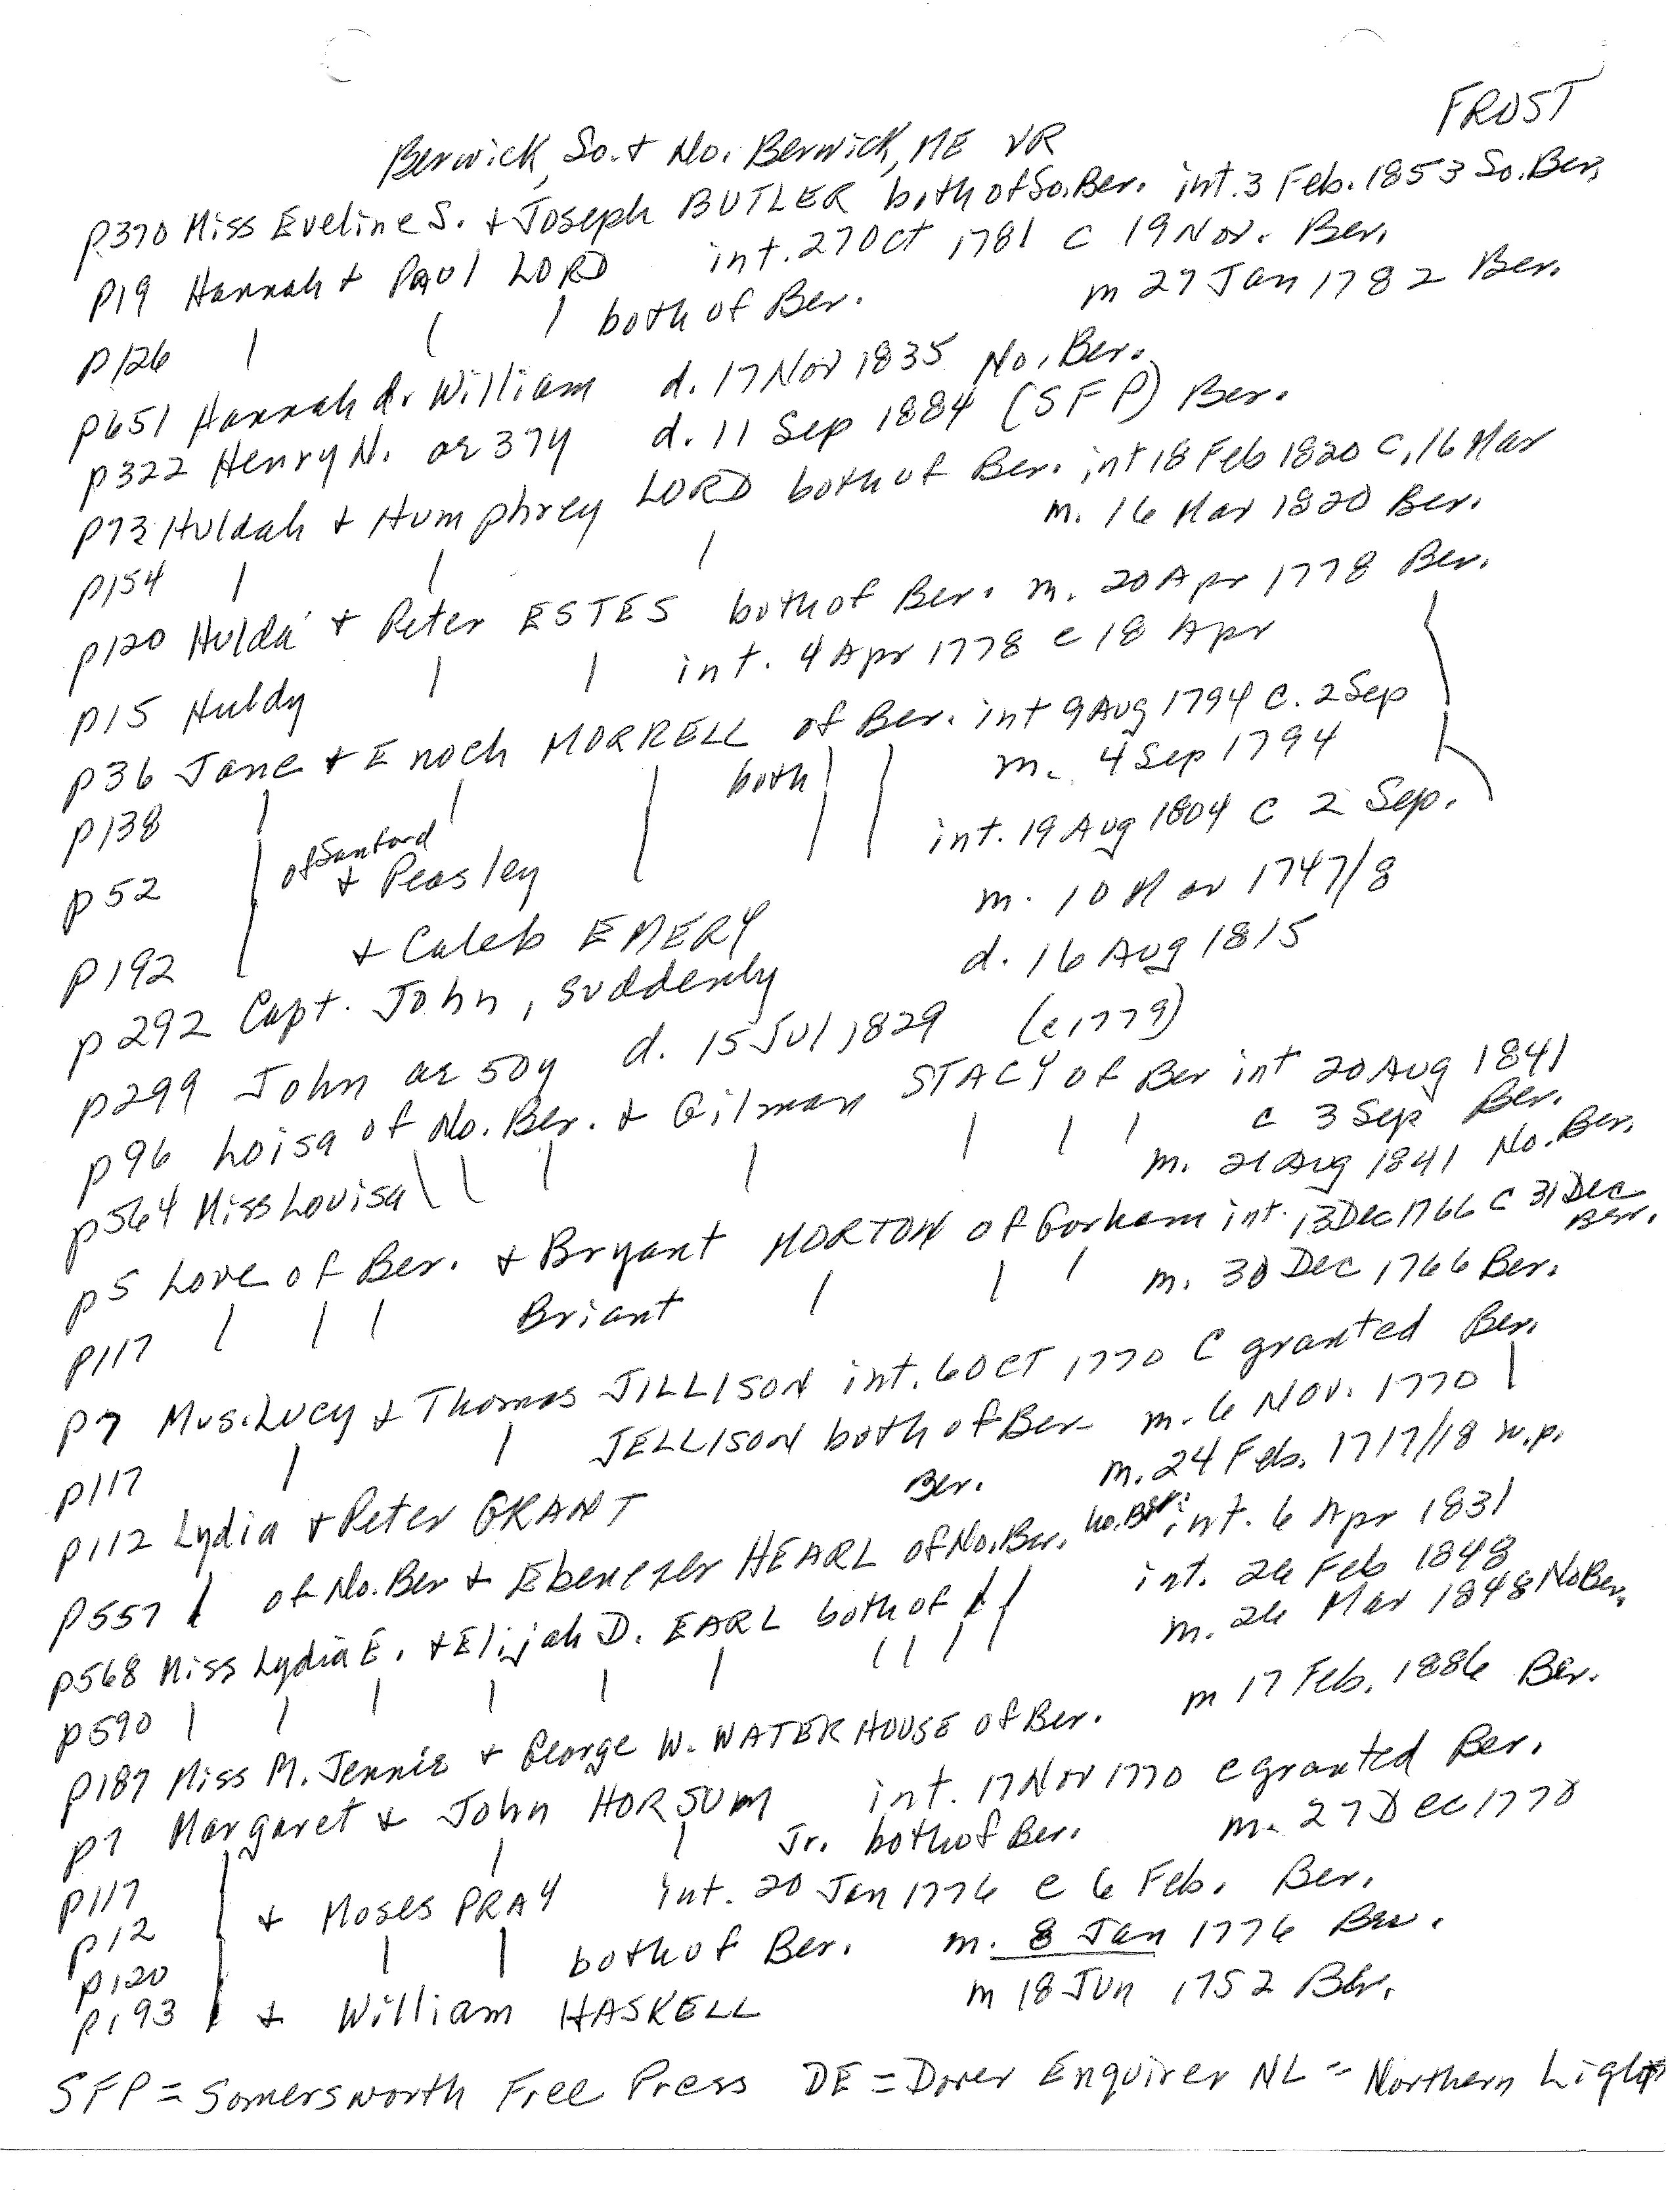 FROST
Berwick, So. + No. Berwick, ME VR
p370 Miss Eveline S. + Joseph BUTLER both of So. Ber. int. 3 Feb. 1853 So. Ber.
p19 Hannah + Paul LORD int. 27 Oct 1781 c 19 Nov. Ber.
p126 | | | both of Ber. m 27 Jan 1782 Ber.
p651 Hannah d. William d. 17 Nov 1835 No. Ber.
p322 Henry N. ae 37y d. 11 Sep 1884 (SFP) Ber.
p73 Huldah + Humphrey LORD both of Ber. int 18 Feb 1820 c. 16 Mar
p154 | | | m. 16 Mar 1820 Ber.
p120 Hulda + Peter ESTES both of Ber. m. 20 Apr 1778 Ber.
p15 Huldy | | int. 4 Apr 1778 c 18 Apr
p36 Jane + Enoch MORRELL of Ber. int 9 Aug 1794 c. 2 Sep
p138 | | | both | | m. 4 Sep 1794
p52 | of Sanford + Peasley | int. 19 Aug 1804 c 2 Sep.
p192 | + Caleb EMERY m. 10 Mar 1747/8
p292 Capt. John, suddenly d. 16 Aug 1815
p299 John ae 50y d. 15 Jul 1829 (c1779)
p96 Loisa of No. Ber. + Gilman STACY of Ber int 20 Aug 1841
c 3 Sep Ber.
p564 Miss Lovisa | | | | | | | m. 21 Aug 1841 No. Ber.
p5 Love of Ber. + Bryant MORTON of Gorham int. 13 Dec 1766 c 31 Dec Ber.
p117 | | | Briant | | | m. 30 Dec 1766 Ber.
p7 Mrs. Lucy + Thomas JILLISON int. 6 Oct 1770 c granted Ber.
p117 | | JELLISON both of Ber. m. 6 Nov. 1770 |
p112 Lydia + Peter GRANT Ber. m. 24 Feb. 1717/18 n.p.
p557 | of No. Ber + Ebenezer HEARL of No. Ber. No. Ber. int. 6 Apr 1831
p568 Miss Lydia E. + Elijah D. EARL both of | | int. 26 Feb 1848
p590 | | | | | | | | | | m. 26 Mar 1848 No Ber.
p187 Miss M. Jennie + George W. WATERHOUSE of Ber. m 17 Feb. 1886 Ber.
p7 Margaret + John HORSUM int. 17 Nov 1770 c granted Ber.
p117 | | | Jr. both of Ber. m. 27 Dec 1770
p12 | + Moses PRAY int. 20 Jan 1776 c 6 Feb. Ber.
p120 | | | both of Ber. m. 8 Jan 1776 Ber.
p193 | + William HASKELL m 18 Jun 1752 Ber.
SFP = Somersworth Free Press DE = Dover Enquirer NL = Northern Light